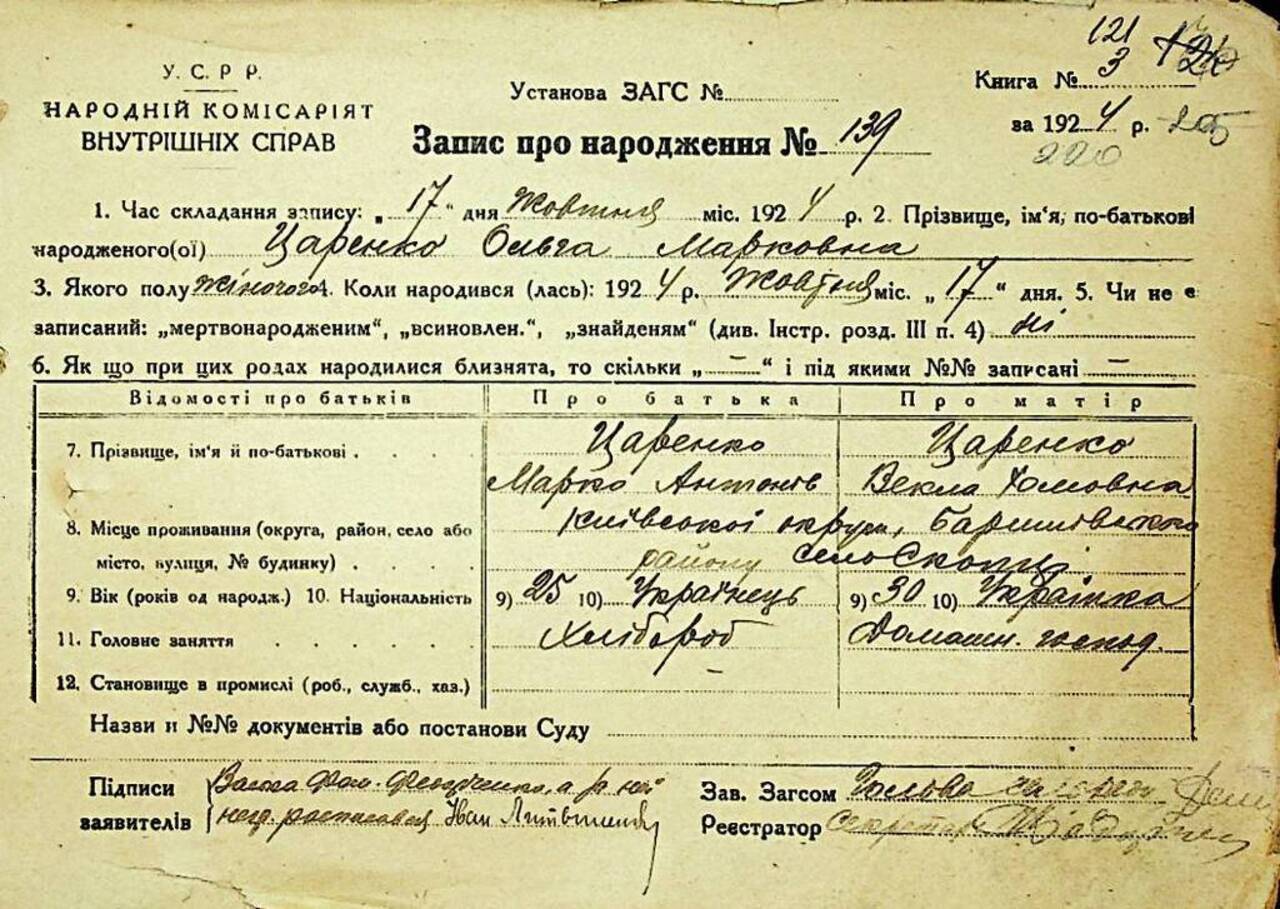 121
У. С. Р. Р.
НАРОДНІЙ КОМІСАРІЯТ
ВНУТРІШНІХ СПРАВ
Установа ЗАГС №
Книга № 3
за 1924 р.
220
Запис про народження № 139
1. Час складання запису: „17" дня Жовтня міс. 1924 р. 2. Прізвище, ім'я, по-батькові
народженого(ої) Царенко Ольга Марковна
3. Якого полу Жіночого 4. Коли народився (лась): 1924 р. Жовтня міс. „17" дня. 5. Чи не є
записаний: „мертвонародженим", „всиновлен.", „знайденям" (див. Інстр. розд. III п. 4) ні
6. Як що при цих родах народилися близнята, то скільки „—" і під якими №№ записані —
Відомості про батьків Про батька Про матір
7. Прізвище, ім'я й по-батькові . . . . Царенко Царенко
Марко Антонів Векла Хомовна
8. Місце проживання (округа, район, село або Київської округи, Баришівського
місто, вулиця, № будинку) . . . . району село Скопці
9. Вік (років од народж.) 10. Національність 9) 25 10) Українець 9) 30 10) Українка
11. Головне заняття . . . . . . Хлібороб Домашн. господ.
12. Становище в промислі (роб., служб., хаз.)
Назви и №№ документів або постанови Суду
Підписи
заявителів Іван
Зав. Загсом Голова
Реєстратор Секретар